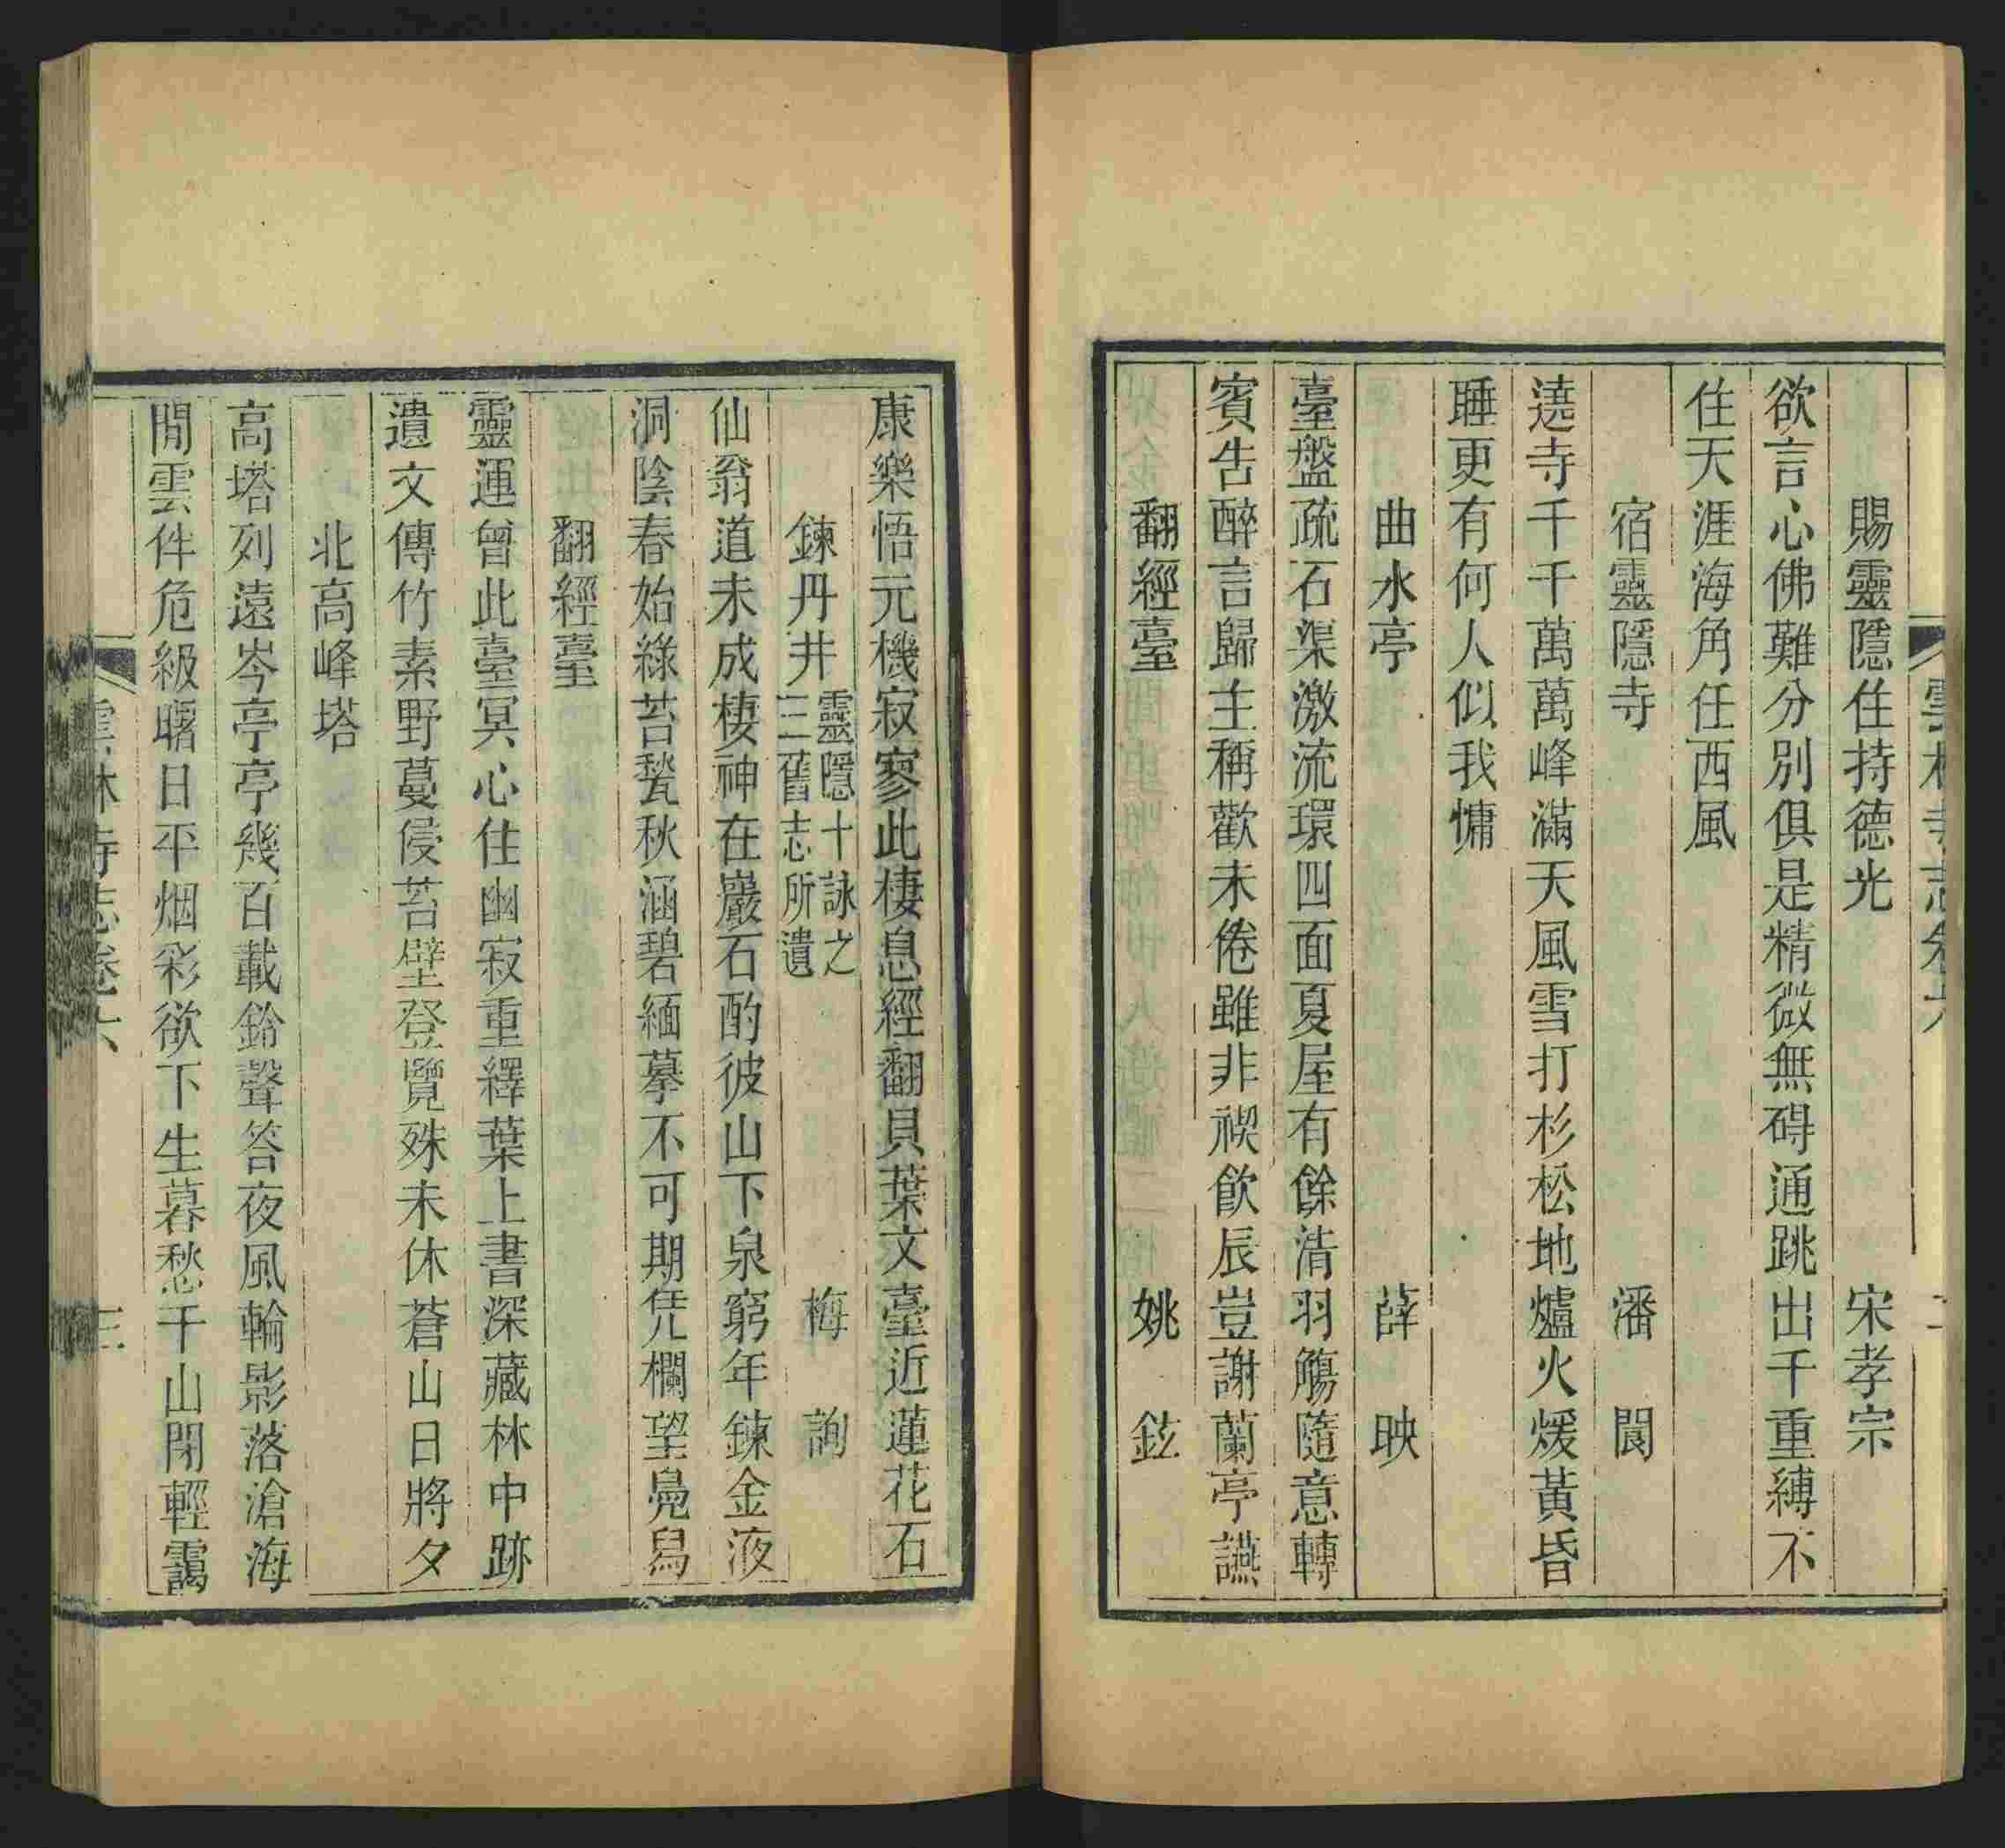 雲林寺志卷六
賜靈隱住持德光 宋孝宗
欲言心佛難分別俱是精微無碍通跳出千重縛不
住天涯海角任西風
宿靈隱寺 潘閬
遶寺千千萬萬峰滿天風雪打杉松地爐火煖黃昏
睡更有何人似我慵
曲水亭 薛映
臺盤疏石渠激流環四面夏屋有餘清羽觴隨意轉
賓告醉言歸主稱歡未倦雖非禊飲辰豈謝蘭亭讌
翻經臺 姚鉉
康樂悟元機寂寥此棲息經翻貝葉文臺近蓮花石
鍊丹井 靈隱十詠之三舊志所遺 梅詢
仙翁道未成棲神在巖石酌彼山下泉窮年鍊金液
洞陰春始綠苔甃秋涵碧緬摹不可期凭欄望鳧舄
翻經臺
靈運曾此臺冥心住幽寂重繹葉上書深藏林中跡
遺文傳竹素野蔓侵苔壁登覽殊未休蒼山日將夕
北高峰塔
高塔列遠岑亭亭幾百載鈴聲答夜風輪影落滄海
閒雲伴危級曙日平烟彩欲下生暮愁千山閉輕靄
雲林寺志卷六 三